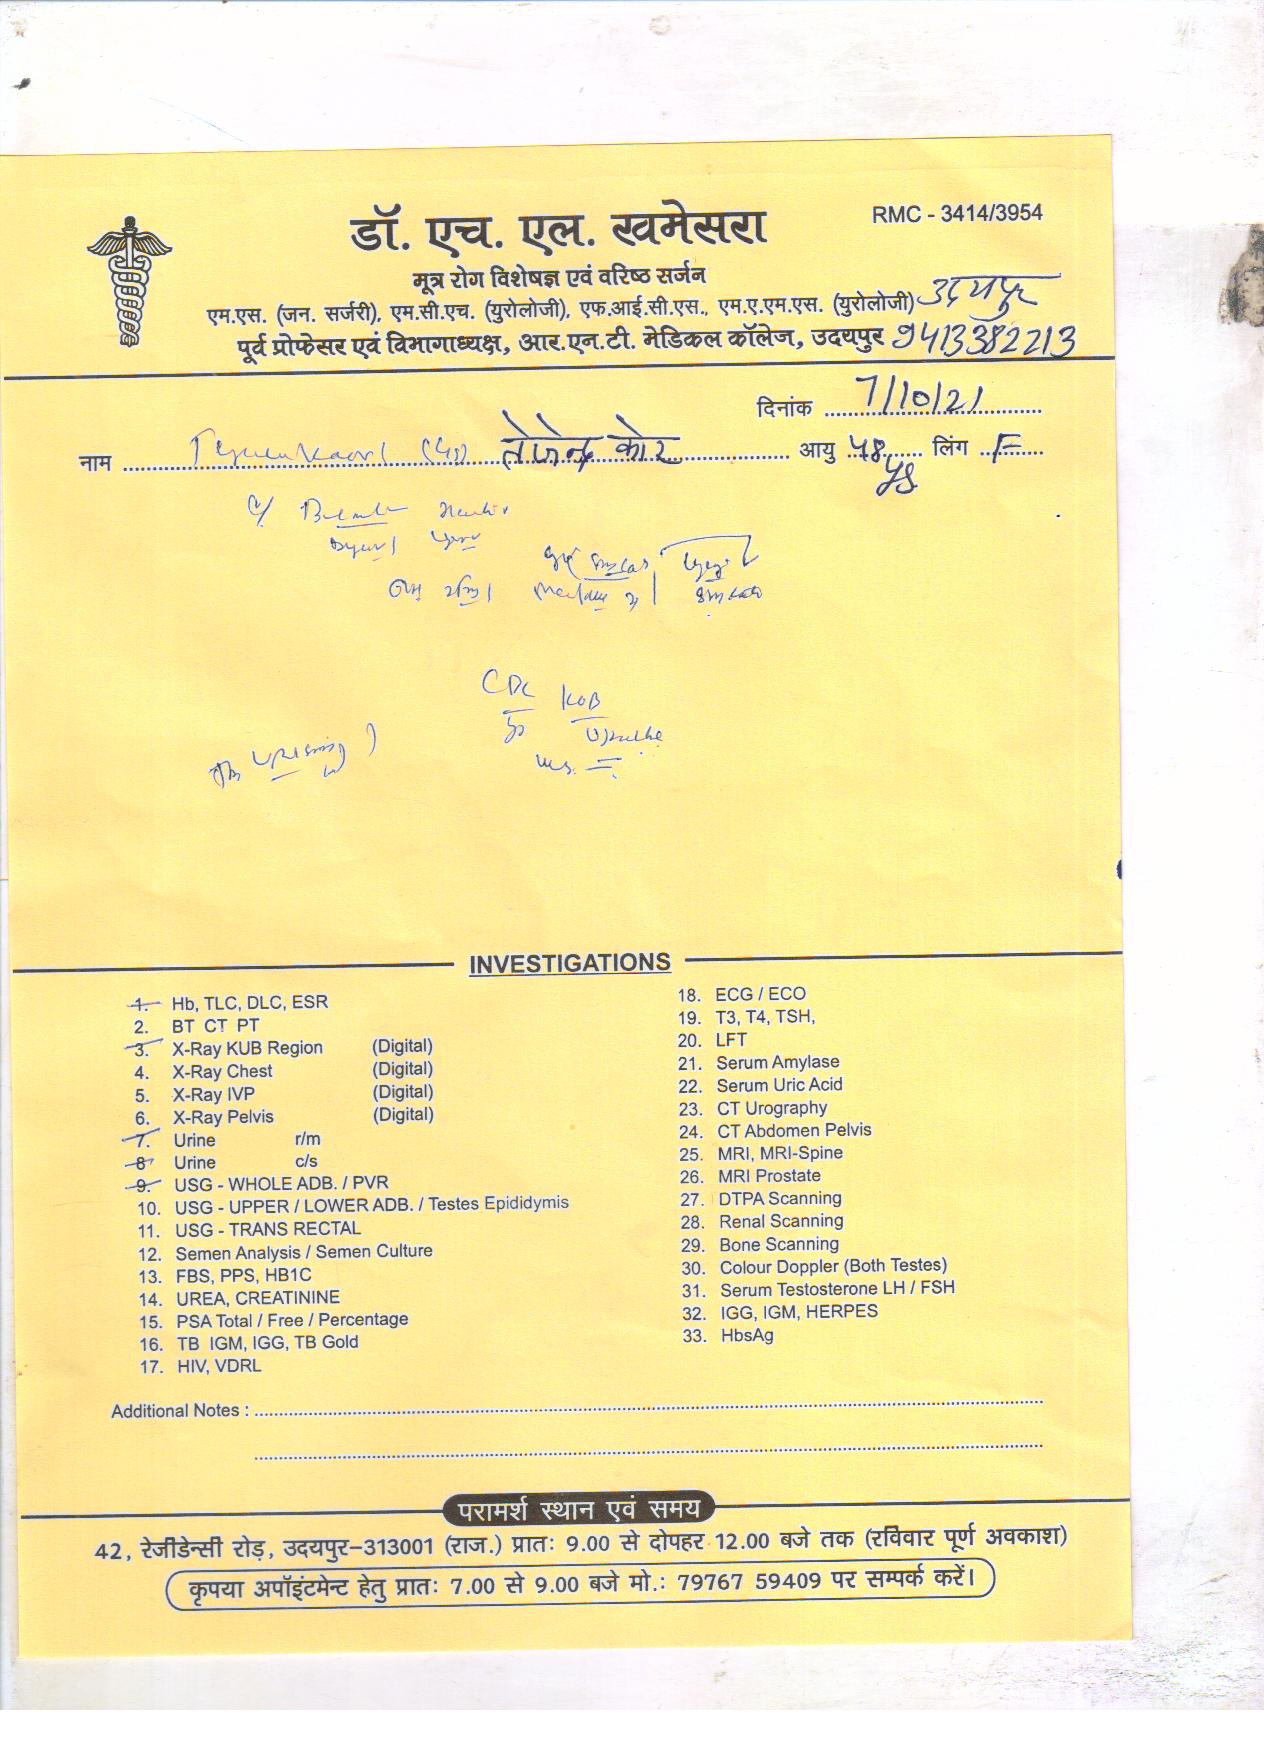 RMC - 3414/3954
डॉ. एच. एल. खमेसरा
मूत्र रोग विशेषज्ञ एवं वरिष्ठ सर्जन
एम.एस. (जन. सर्जरी), एम.सी.एच. (युरोलोजी), एफ.आई.सी.एस., एम.ए.एम.एस. (युरोलोजी) उदयपुर
पूर्व प्रोफेसर एवं विभागाध्यक्ष, आर.एन.टी. मेडिकल कॉलेज, उदयपुर 9413382213
दिनांक 7/10/21
नाम तेजेन्द्र कोर आयु 48 ys लिंग F
KUB
INVESTIGATIONS
1. Hb, TLC, DLC, ESR
2. BT CT PT
3. X-Ray KUB Region (Digital)
4. X-Ray Chest (Digital)
5. X-Ray IVP (Digital)
6. X-Ray Pelvis (Digital)
7. Urine r/m
8 Urine c/s
9. USG - WHOLE ADB. / PVR
10. USG - UPPER / LOWER ADB. / Testes Epididymis
11. USG - TRANS RECTAL
12. Semen Analysis / Semen Culture
13. FBS, PPS, HB1C
14. UREA, CREATININE
15. PSA Total / Free / Percentage
16. TB IGM, IGG, TB Gold
17. HIV, VDRL
18. ECG / ECO
19. T3, T4, TSH,
20. LFT
21. Serum Amylase
22. Serum Uric Acid
23. CT Urography
24. CT Abdomen Pelvis
25. MRI, MRI-Spine
26. MRI Prostate
27. DTPA Scanning
28. Renal Scanning
29. Bone Scanning
30. Colour Doppler (Both Testes)
31. Serum Testosterone LH / FSH
32. IGG, IGM, HERPES
33. HbsAg
Additional Notes :
परामर्श स्थान एवं समय
42, रेजीडेन्सी रोड़, उदयपुर-313001 (राज.) प्रातः 9.00 से दोपहर 12.00 बजे तक (रविवार पूर्ण अवकाश)
कृपया अपॉइंटमेन्ट हेतु प्रातः 7.00 से 9.00 बजे मो.: 79767 59409 पर सम्पर्क करें।